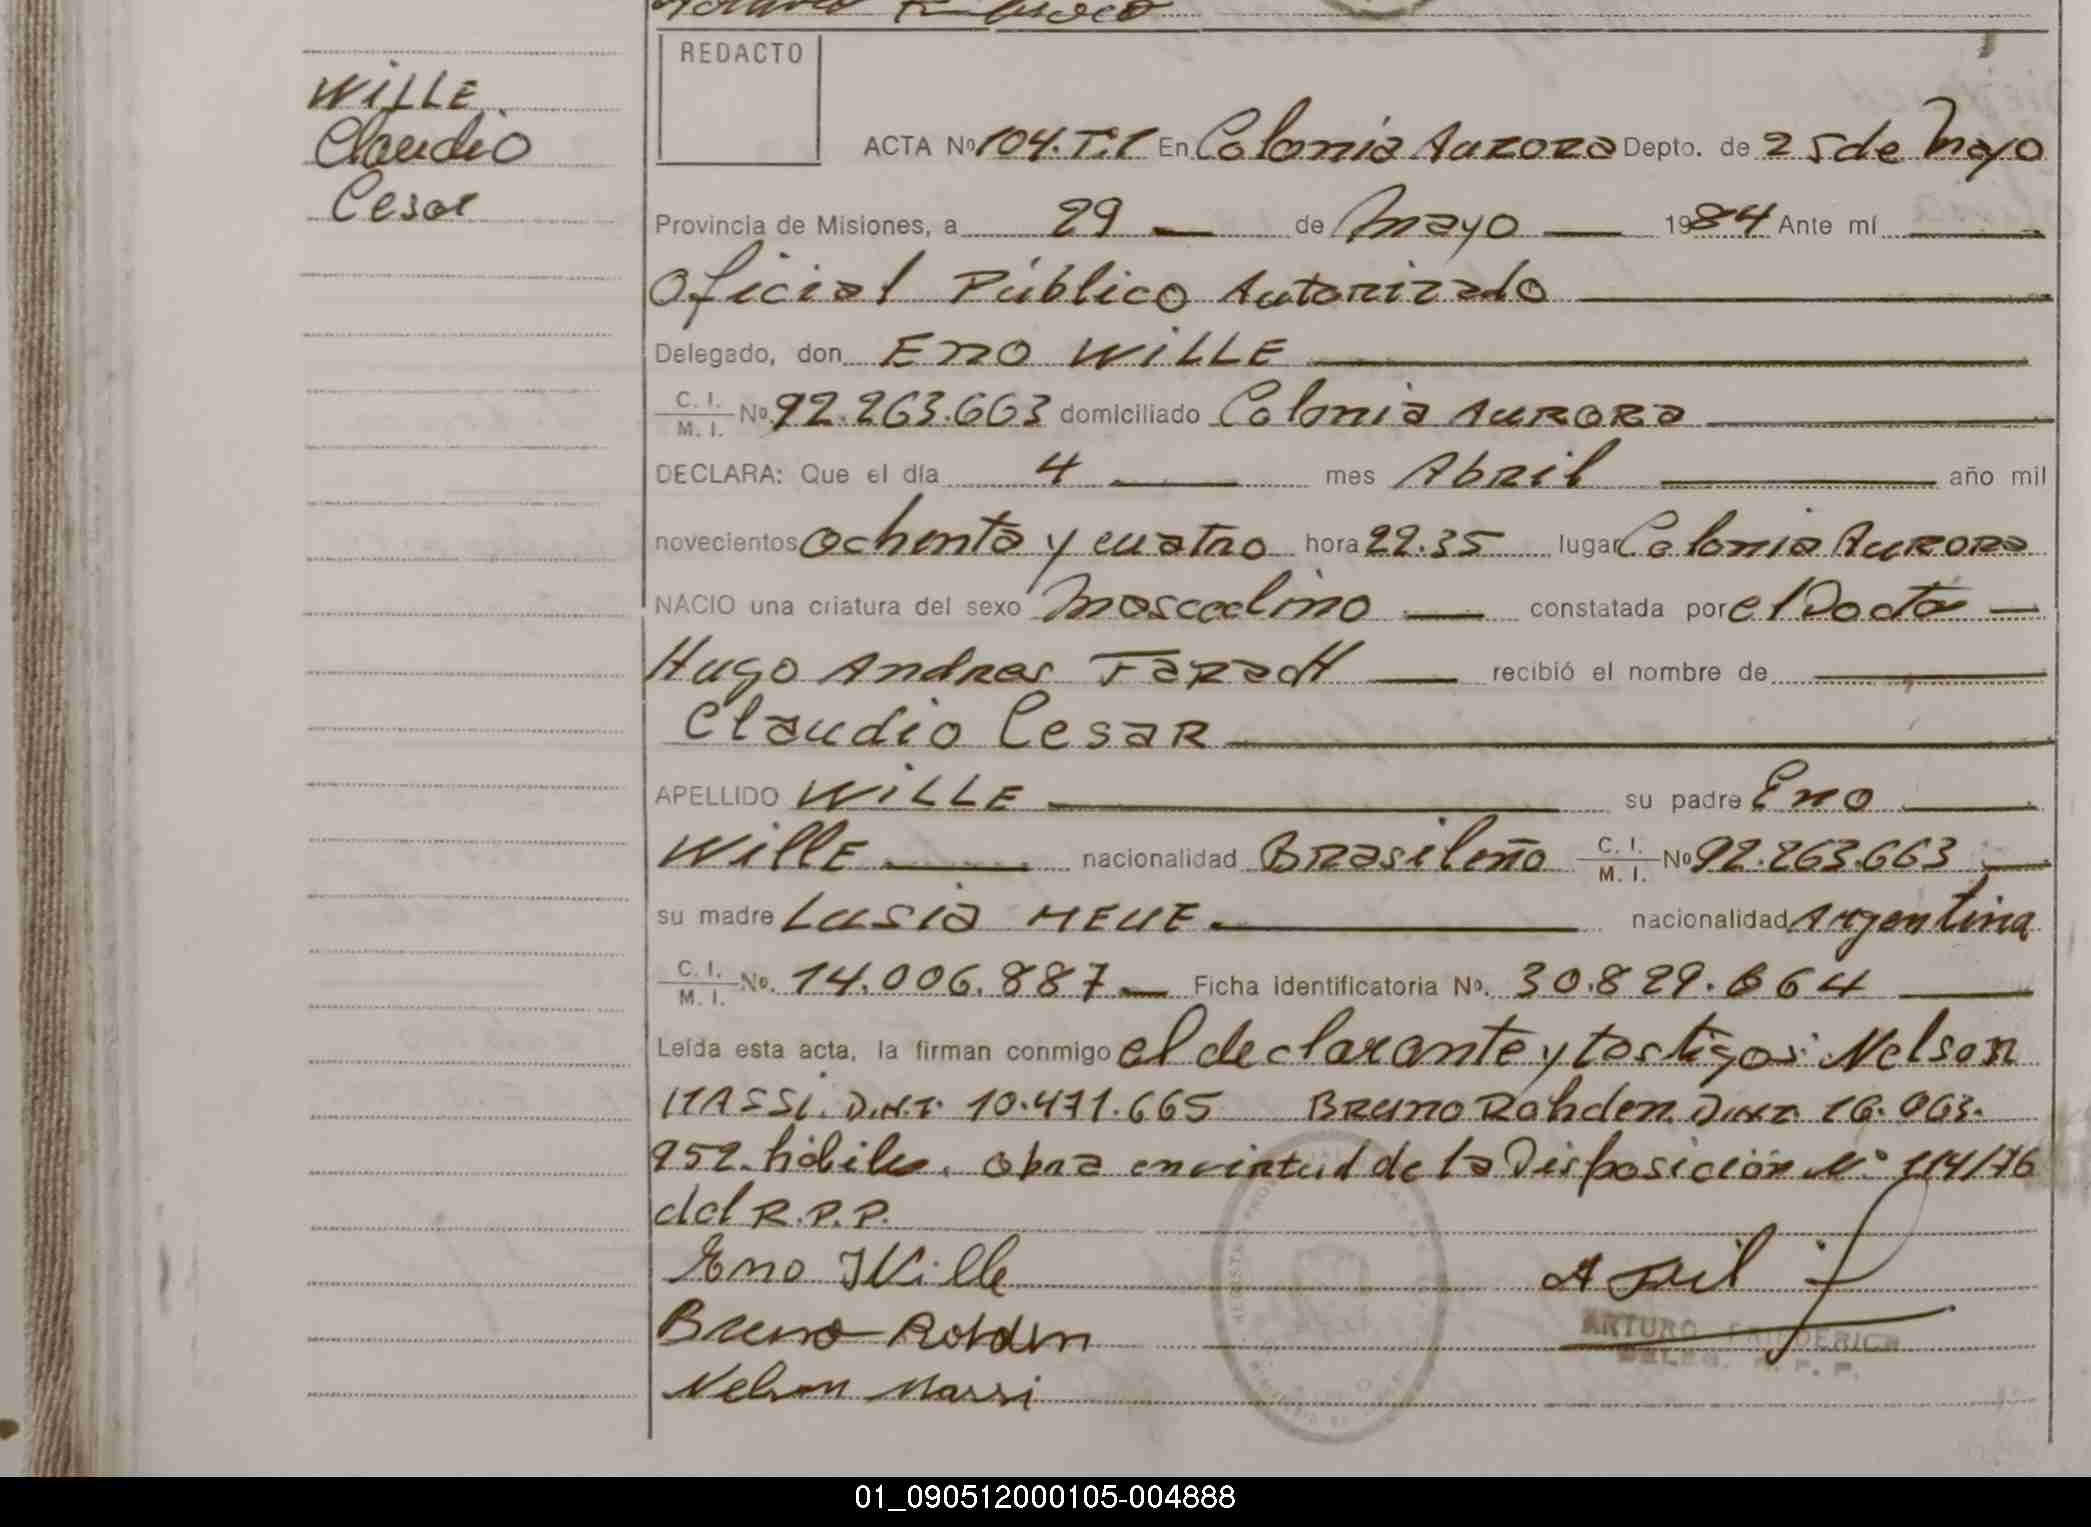 REDACTO
WILLE
Claudio
Cesar
ACTA Nº 104. T: 1 En Colonia Aurora Depto. de 25 de Mayo
Provincia de Misiones, a 29 de Mayo 1984 Ante mí
Oficial Público Autorizado
Delegado, don Eno WILLE
C. I. / M. I. Nº 92.263.663 domiciliado Colonia Aurora
DECLARA: Que el día 4 mes Abril año mil
novecientos ochenta y cuatro hora 22.35 lugar Colonia Aurora
NACIO una criatura del sexo Masculino constatada por el Doctor
Hugo Andres recibió el nombre de
Claudio Cesar
APELLIDO WILLE su padre Eno
Wille nacionalidad Brasileño C. I. / M. I. Nº 92.263.663
su madre Lusia nacionalidad Argentina
C. I. / M. I. Nº. 14.006.887 Ficha identificatoria Nº. 30.829.664
Leída esta acta, la firman conmigo el declarante y testigos: Nelson
MASSi. D.N.I. 10.471.665 Bruno Rohden. D.N.I. 16.063.
952. hábiles. Obra en virtud de la Disposición Nº 114/76
del R.P.P.
Eno Wille
Bruno Rohden
ARTURO
Nelson Massi
01_090512000105-004888